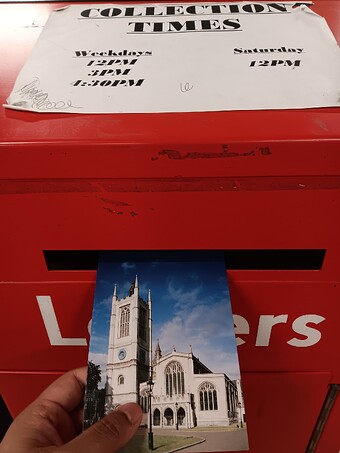 COLLECTION
TIMES
Weekdays
Saturday
12PM
12PM
3PM
4:30PM